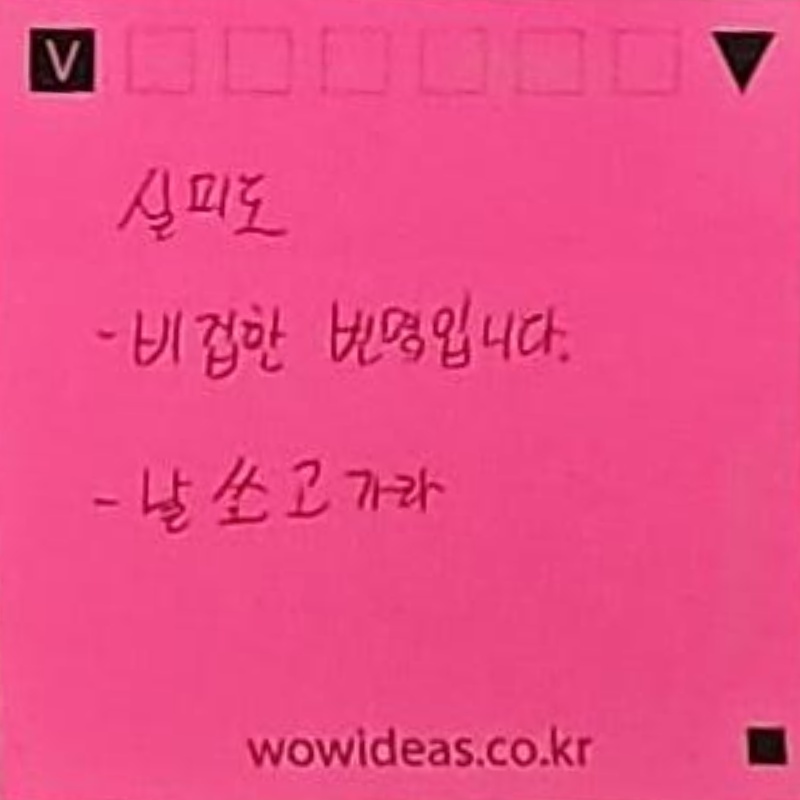 V
실피도
- 비겁한 변명입니다.
- 날 쏘고 가라
wowideas.co.kr